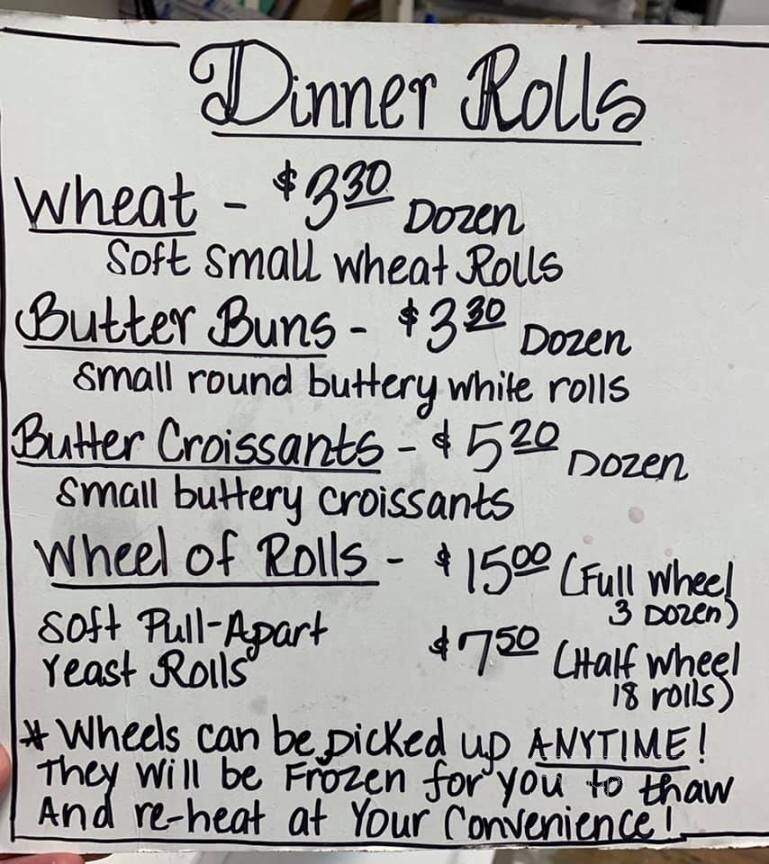 Dinner Rolls
Wheat - $3.30 Dozen
Soft small wheat Rolls
Butter Buns - $3.30 Dozen
Small round buttery white rolls
Butter Croissants - $5.20 Dozen
Small buttery croissants
Wheel of Rolls - $15.00 (Full Wheel
3 Dozen)
Soft Pull-Apart
Yeast Rolls
$7.50 (Half Wheel
18 rolls)
* Wheels can be picked up ANYTIME!
They will be Frozen for you to thaw
And re-heat at Your Convenience!